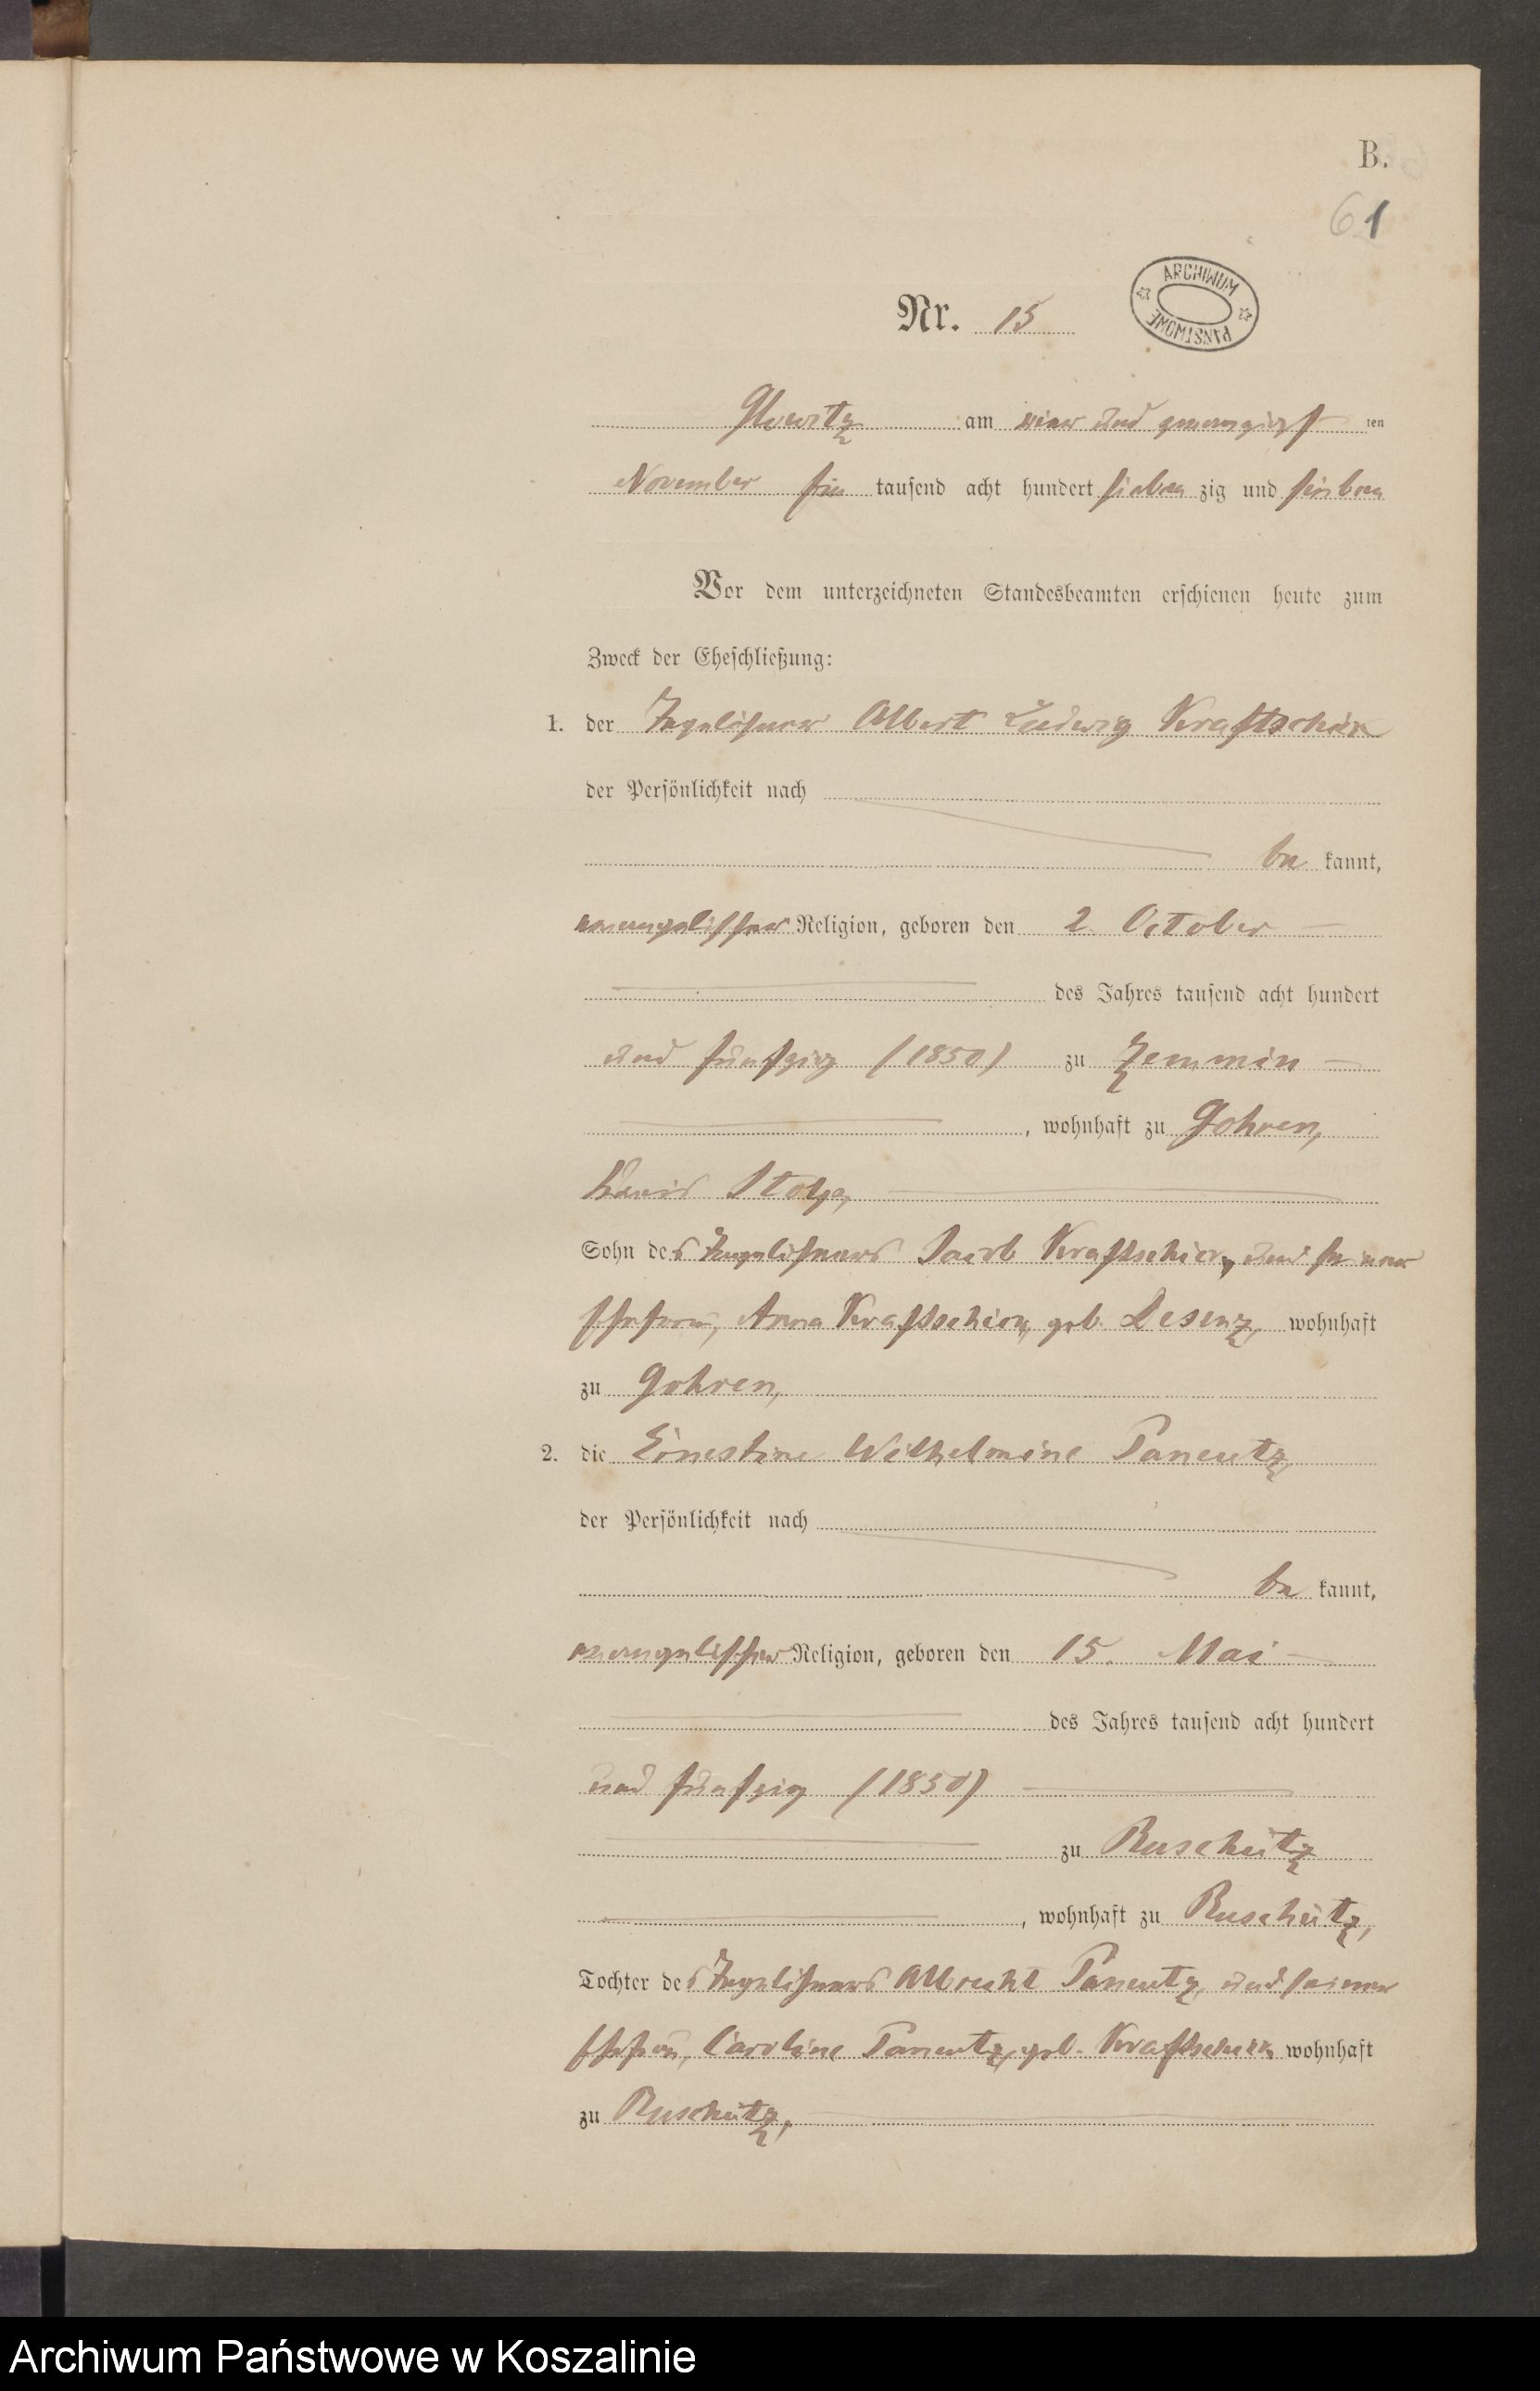 B.
61
Nr. 15
ARCHIWUM PAŃSTWOWE
Glowitz am vier und zwanzigst ten
November ein tausend acht hundert sieben zig und sieben
Vor dem unterzeichneten Standesbeamten erschienen heute zum
Zweck der Eheschließung:
1. der Tagelöhner Albert Ludwig
der Persönlichkeit nach
be kannt,
evangelischer Religion, geboren den 2. October
des Jahres tausend acht hundert
und fünfzig (1850) zu Zemmin
, wohnhaft zu Gohren,
Kreis Stolp,
Sohn des Tagelöhners Jacob und seiner
Ehefrau, Anna geb. wohnhaft
zu Gohren,
2. die Ernestine Wilhelmine
der Persönlichkeit nach
be kannt,
evangelischer Religion, geboren den 15. Mai
des Jahres tausend acht hundert
und fünfzig (1850)
zu Ruschütz
, wohnhaft zu Ruschütz,
Tochter des Tagelöhners Albrecht und seiner
Ehefrau, Caroline geb. wohnhaft
zu Ruschütz,
Archiwum Państwowe w Koszalinie